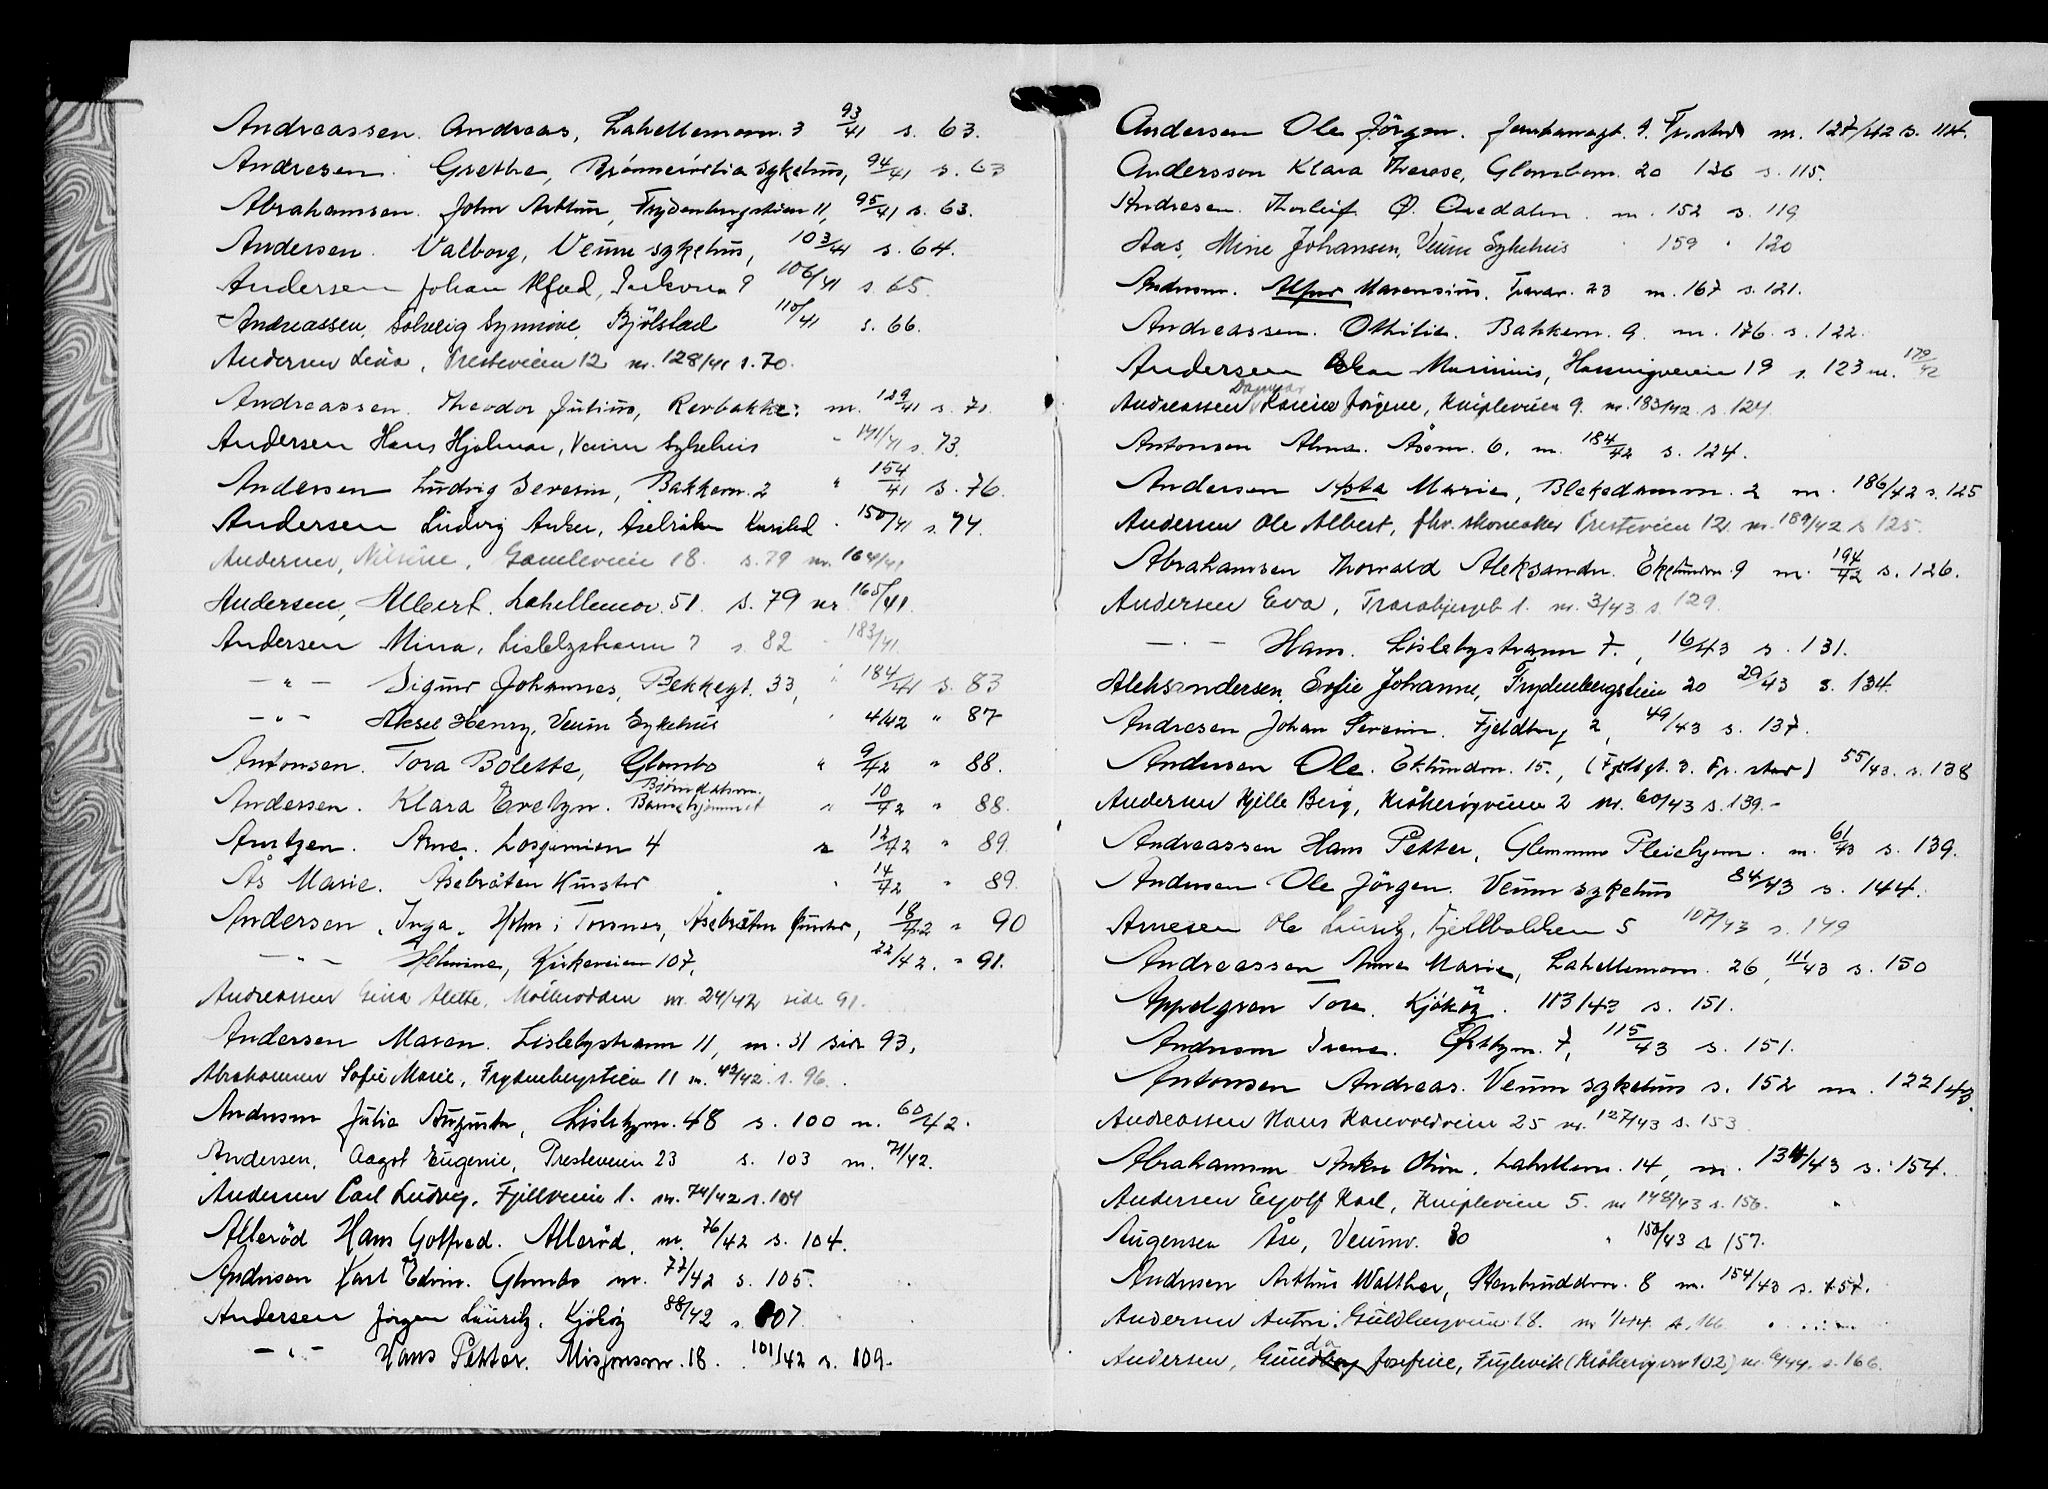 Andreassen. Andreas, Lahellemoen. 3 93/41 s. 63.
Andresen. Grethe, sykehus, 94/41 s. 63
Abrahamsen. John Arthur, Frydenbergstien 11, 95/41 s. 63.
Andersen. Valborg, Veum sykehus, 103/41 s. 64.
Andersen Johan 9 106/41 s. 65.
Andreassen, Solveig Synnöve, Bjölstad 110/41 s. 66.
Andersen Lena, Presteveien 12 nr. 128/41 s. 70.
Andreassen. Theodor Julius, Revbakke. nr. 129/41 s. 71
Andersen Hans Hjalmar, Veum Sykehus " 141/41 s. 73.
Andersen Ludvig Severin, Bakkevn. 2 " 154/41 s. 76.
Andersen Ludvig Anker, Åsebråten 150/41 s. 74.
Andersen, Nilsine, Gamleveien 18. s. 79 nr. 164/41
Andersen, Albert. Lahellemov. 51. s. 79 nr 165/41.
Andersen Mina, Lislebystrann 7 s. 82 183/41.
— " — Sigurd Johannes, Bekkegt. 33, " 184/41 s. 83
— " — Aksel Henry, Veum Sykehus " 4/42 " 87
Antonsen. Tora Bolette, Glombo " 9/42 " 88.
Andersen. Klara Evelyn. Barnehjemmet " 10/42 " 88.
Arntzen. Arne. 4 " 12/42 " 89.
Ås Marie. Åsebråten Kurster " 14/42 " 89.
Andersen, Inga, Holm i Torsnes, Åsebråten Kurster, 18/42 " 90
— " — Helmine, Kirkeveien 107, 22/42. " 91.
Andreassen Gina Alette, nr. 24/42 side 91.
Andersen Maren. Lislebystrann 11, nr. 31 side 93.
Abrahamsen Sofie Marie, Frydenbergstien 11 nr. 43/42 s. 96.
Andersen Julie Augusta, Lislebyvn. 48 s. 100 nr. 60/42.
Andersen, Aagot Eugenie, Presteveien 23 s. 103 nr. 71/42.
Andersen Carl Ludvig, Fjellveien 1. nr. 74/42 s. 104
Alleröd Hans Gotfred. Alleröd, nr. 76/42 s. 104.
Andersen Karl Edvin. Glombo nr. 77/42 s. 105.
Andersen Jörgen Lauritz, Kjököy 88/42 s. 107
— " — Hans Petter. Misjonsvn. 18. 101/42 s. 109.
Andersen Ole Jörgen. 9. Fr.stad nr. 127/42 s. 114.
Andersson Klara Therese, Glombovn. 20 136 s. 115.
Andresen. Thorleif Ø. Oredalen. nr. 152 s. 119
Aas, Mine Johansen, Veum Sykehus " 159 " 120
Andersen. Alfur Marensius. Traravn. 23 nr. 167 s. 121.
Andreassen. Othilie. Bakkevn. 9. nr. 176 s. 122.
Andersen Marinius, Hassingveien 19 s. 123 nr. 179/42
Dagmar
Andreassen Karine Jörgine, Knipleveien 9. nr. 183/42 s. 124
Antonsen Alma. Åsevn. 6. nr. 184/42 s. 124.
Andersen Asta Marie, Bleksdammen. 2 nr. 186/42 s. 125
Andersen Ole Albert, fhv. skomaker Presteveien 12. nr. 189/42 s 125.
Abrahamsen Thorvald Aleksander. Eklundvn. 9 nr. 194/42 s. 126.
Andersen Eva, 1. nr. 3/43 s. 129.
— " — Hans. Lislebystrann 7., 16/43 s. 131.
Aleksandersen, Sofie Johanne, Frydenbergstien 20 29/43 s. 134.
Andresen Johan Severin. Fjeldberg 2, 49/43 s. 137.
Andersen Ole. Eklundvn. 15., ( 3. Fr. stad) 55/43. s. 138
Andersen Kjelle Berg, Kråkeröyveien 2 nr. 60/43 s. 139.-
Andreassen Hans Petter, Glemmen Pleiehjem. nr. 61/43 s. 139.
Andersen Ole Jörgen. Veum sykehus 84/43 s. 144.
Arnesen Ole Lauritz, Fjellbakken 5 107/43 s. 149
Andreassen Anne Marie, Lahellemoen. 26, 111/43 s. 150
Appelgren Tora. Kjököy. 113/43 s. 151.
Andersen Irene. 7, 115/43 s. 151.
Antonsen Andreas. Veum sykehus s. 152 nr. 122/43.
Andreassen Hans 25 nr. 127/43 s. 153
Abrahamsen Anker 14, nr. 134/43 s. 154.
Andersen Eyolf Karl, Knipleveien 5. nr 148/43 s. 156.
Augensen Åse, Veumv. 30 " 150/43 s 157.
Andersen Arthur Walther, Stenbruddvn. 8 nr. 154/43 s. 157.
Andersen Anton. Guldbergveien 18. nr 1/44. s. 166
Andersen, Josefine, Fuglevik (Kråkeröyvn 102) nr. 6/44. s. 166.